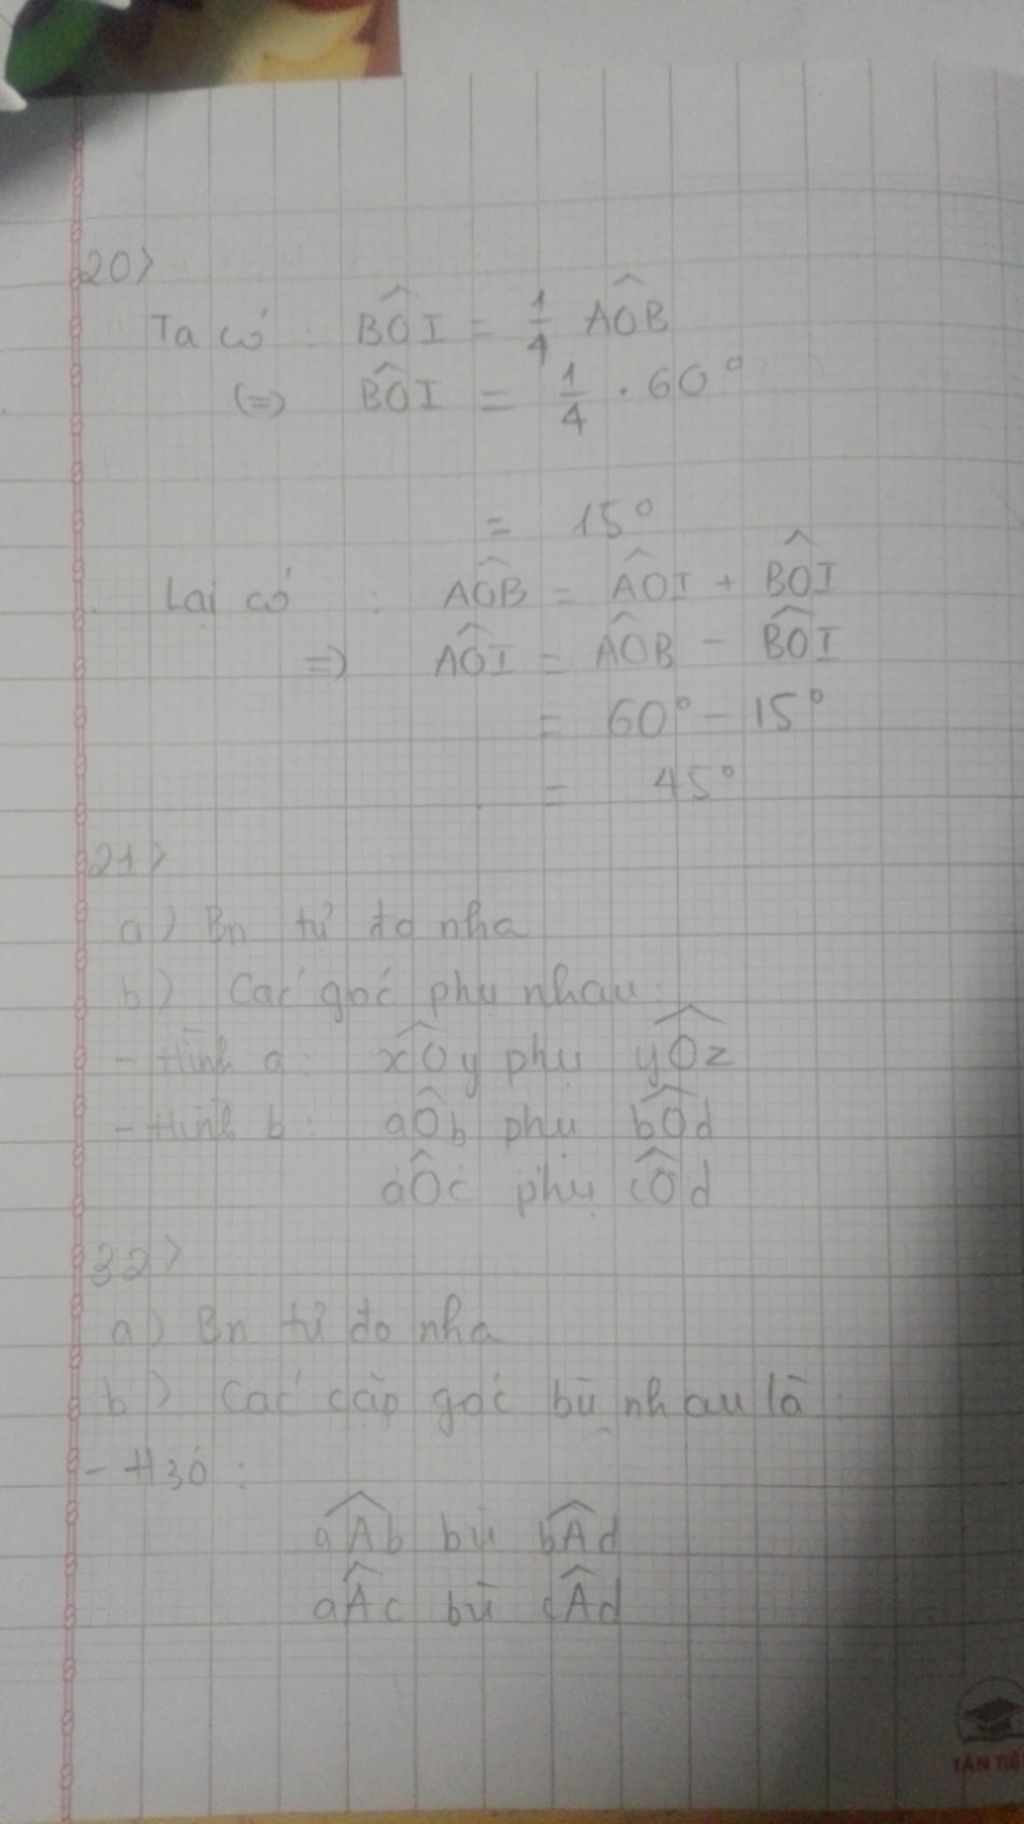 20>
Ta có : BÔI = 1/4 AÔB
(=> BÔI = 1/4 . 60°
= 15°
Lại có : AÔB = AÔI + BÔI
=> AÔI = AÔB - BÔI
= 60° - 15°
= 45°
21>
a) Bn tử đo nha
b) Các góc phụ nhau:
- Hình a: xÔy phụ yÔz
- Hình b: aÔb phụ bÔd
aÔc phụ cÔd
32>
a) Bn tử đo nha
b) Các cặp góc bù nhau là
- H30 :
aÂb bù bÂd
aÂc bù cÂd